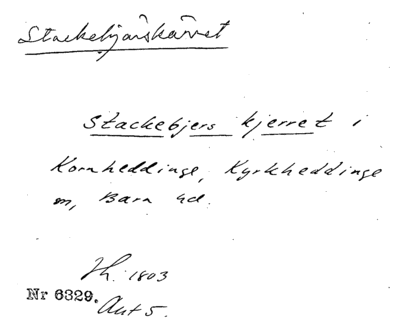 Stackebjärskärret
Stackebjers kjerret i
Kornheddinge, Kyrkheddinge
m, Bara hd.
Th. 1803
Nr 6329. Akt 5.